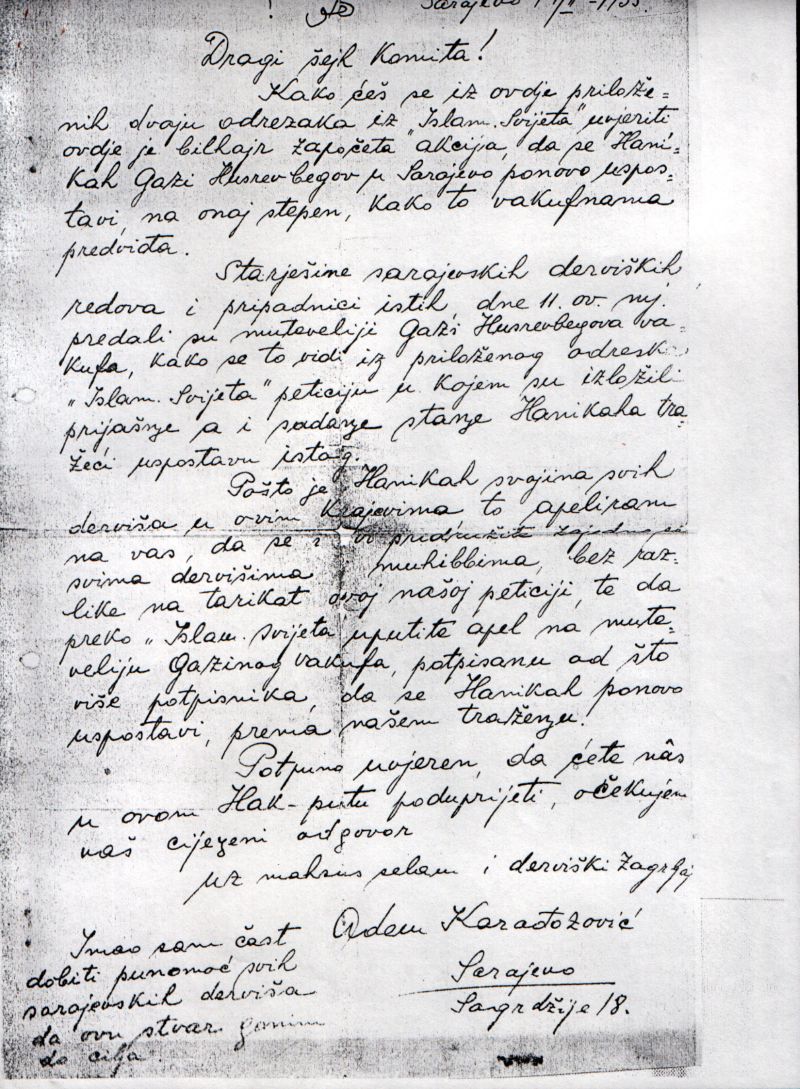 Sarajevo
Dragi šejh Komita!
Kako ćeš se iz ovdje prilože=
nih dvaju odrezaka iz "Islam. Svijeta" uvjeriti
ovdje je bilhajr započeta akcija, da se Hani=
kah Gazi Husrevbegov u Sarajevo ponovo uspos=
tavi, na onaj stepen, kako to vakufnama
predviđa.
Starješine sarajevskih derviških
redova i pripadnici istih dne 11. ov. mj.
predali su muteveliji Gazi Husrevbegova va=
kufa, kako se to vidi iz priloženog odreska
"Islam. Svijeta" peticiju u kojem su izložili
prijašnje a i sadanje stanje Hanikaha tra=
žeći uspostavu istog.
Pošto je Hanikah svojina svih
derviša u ovim krajevima to apeliram
na vas, da se i vi pridružite zajedno sa
svima dervišima muhibbima, bez raz=
like na tarikat ovoj našoj peticiji, te da
preko "Islam. svijeta uputite apel na mute=
veliju Gazinog vakufa, potpisanu od što
više potpisnika, da se Hanikah ponovo
uspostavi, prema našem traženju.
Potpuno uvjeren, da ćete nâs
u ovom Hak-putu poduprijeti, očekujem
vaš cijenjeni odgovor
uz mahsus selam i derviški zagrljaj
Adem Karađozović
Sarajevo
Sagrdžije 18.
Imao sam čast
dobiti punomoć svih
sarajevskih derviša
da ovu stvar gonim
do cilja